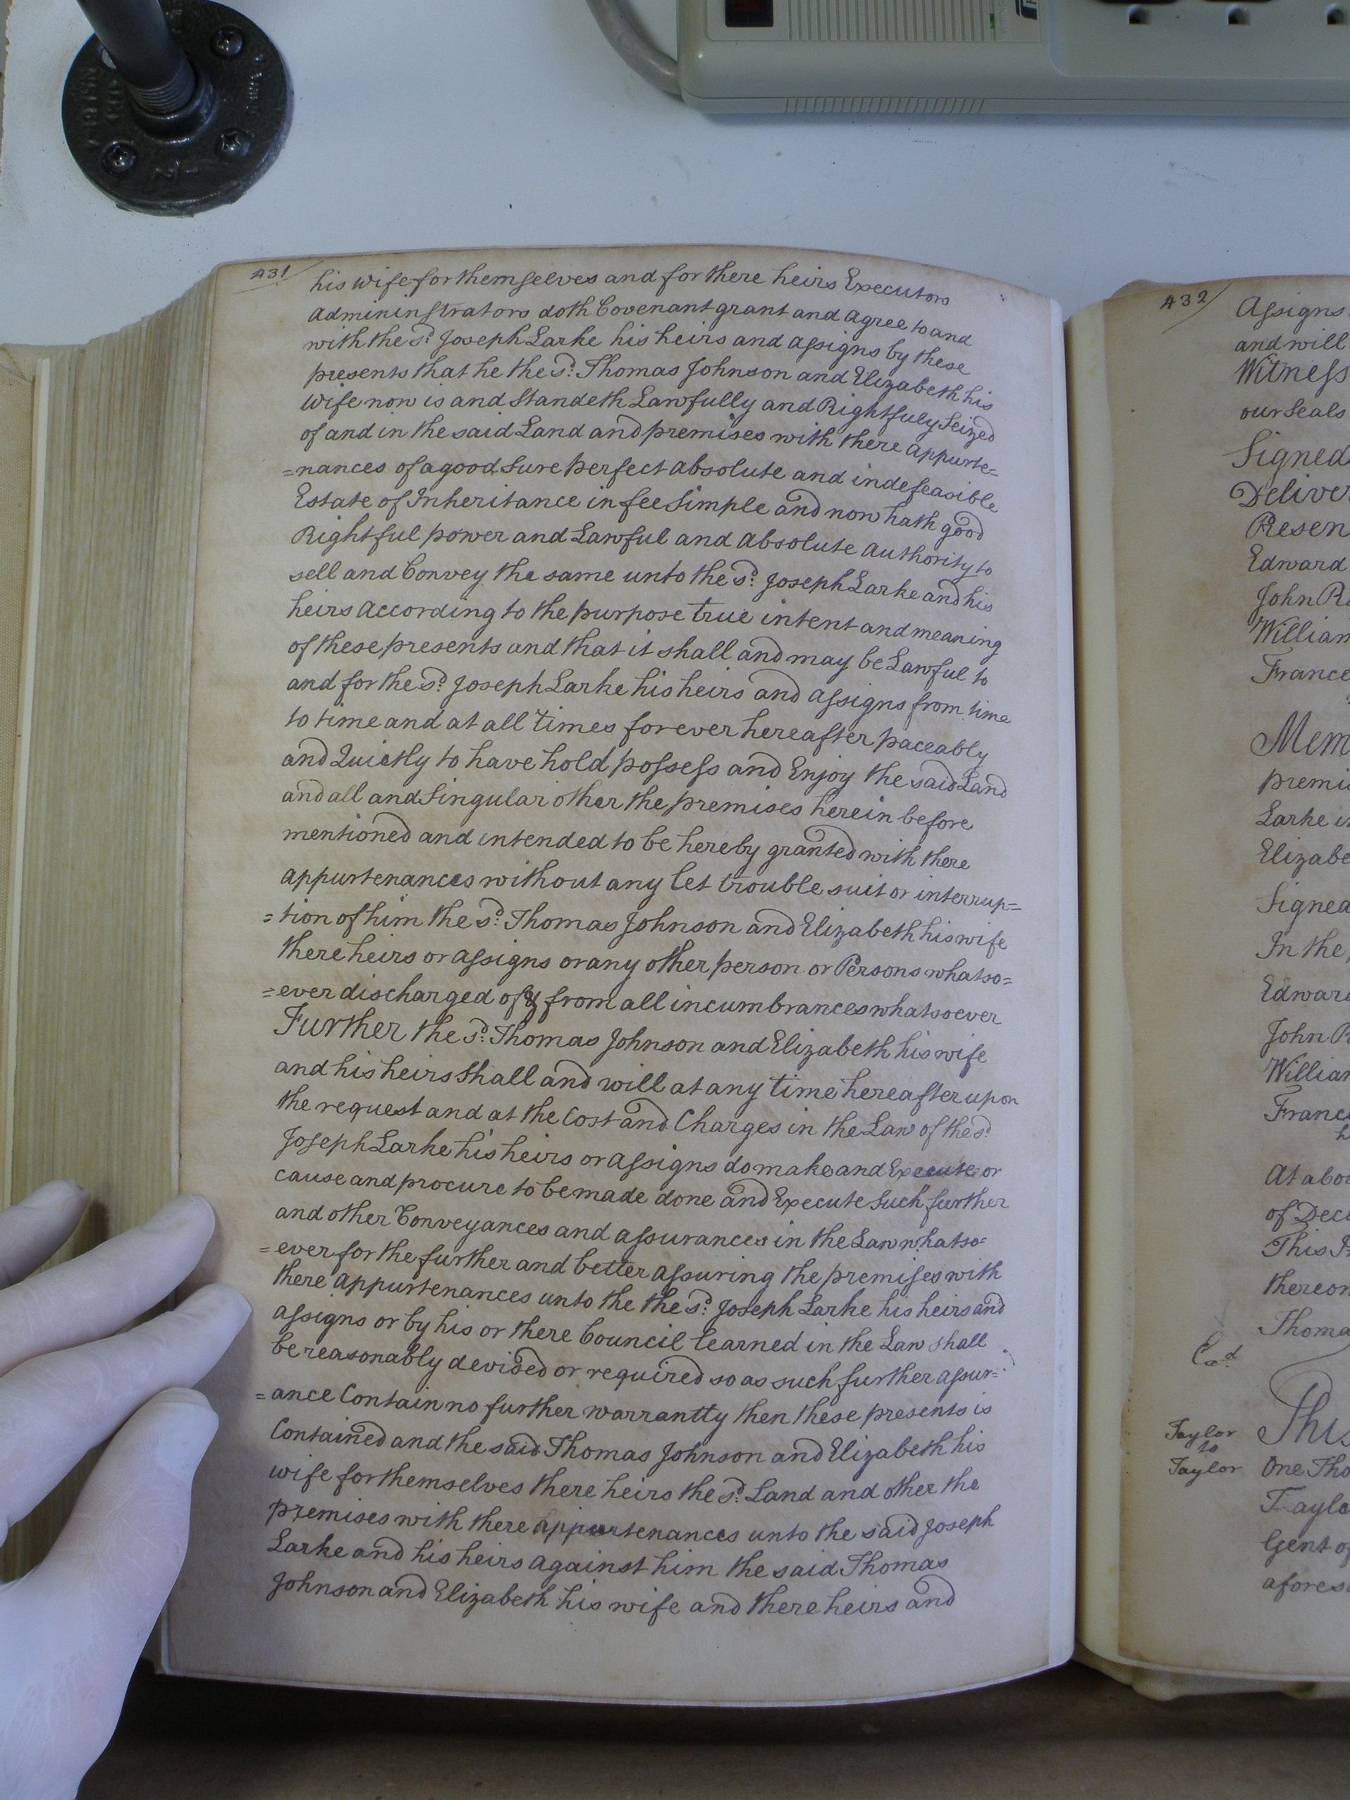 431
his wife for themselves and for there heirs Executors
Admininstrators doth Covenant grant and agree to and
with the sd. Joseph Larke his heirs and assigns by these
presents that he the sd. Thomas Johnson and Elizabeth his
wife now is and Standeth Lawfully and Rightfuly Seized
of and in the said Land and premises with there appurte=
=nances of a good Sure perfect absolute and indefeasible
Estate of Inheritance in fee Simple and now hath good
Rightful power and Lawful and absolute authority to
sell and Convey the same unto the sd. Joseph Larke and his
heirs according to the purpose true intent and meaning
of these presents and that it shall and may be Lawful to
and for the sd. Joseph Larke his heirs and assigns from time
to time and at all times for ever hereafter paceably
and Quietly to have hold possess and Enjoy the said Land
and all and Singular other the premises herein before
mentioned and intended to be hereby granted with there
appurtenances without any let trouble suit or interrup=
=tion of him the sd. Thomas Johnson and Elizabeth his wife
there heirs or assigns or any other person or Persons whatso=
=ever discharged of & from all incumbrances whatsoever
Further the sd. Thomas Johnson and Elizabeth his wife
and his heirs Shall and will at any time hereafter upon
the request and at the Cost and Charges in the Law of the sd.
Joseph Larke his heirs or assigns do make and Execute or
cause and procure to be made done and Execute Such further
and other Conveyances and assurances in the Law whatso=
=ever for the further and better assuring the premises with
there appurtenances unto the the sd. Joseph Larke his heirs and
assigns or by his or there Council Learned in the Law shall
be reasonably devided or required so as such further assur=
=ance Contain no further warrantty then these presents is
Contained and the said Thomas Johnson and Elizabeth his
wife for themselves there heirs the sd. Land and other the
premises with there appurtenances unto the said Joseph
Larke and his heirs against him the said Thomas
Johnson and Elizabeth his wife and there heirs and
432
Assigns
and will
Witness
our Seals
Signed
Deliver
Resen
Edward
John R
William
France
Mem
premi
Larke i
Elizabe
Signed
In the
Edward
John R
William
Franc
At abo
of Dec
This
thereon
Thoma
Exd.
Taylor
to
Taylor
This
One Tho
Taylo
Gent of
afores